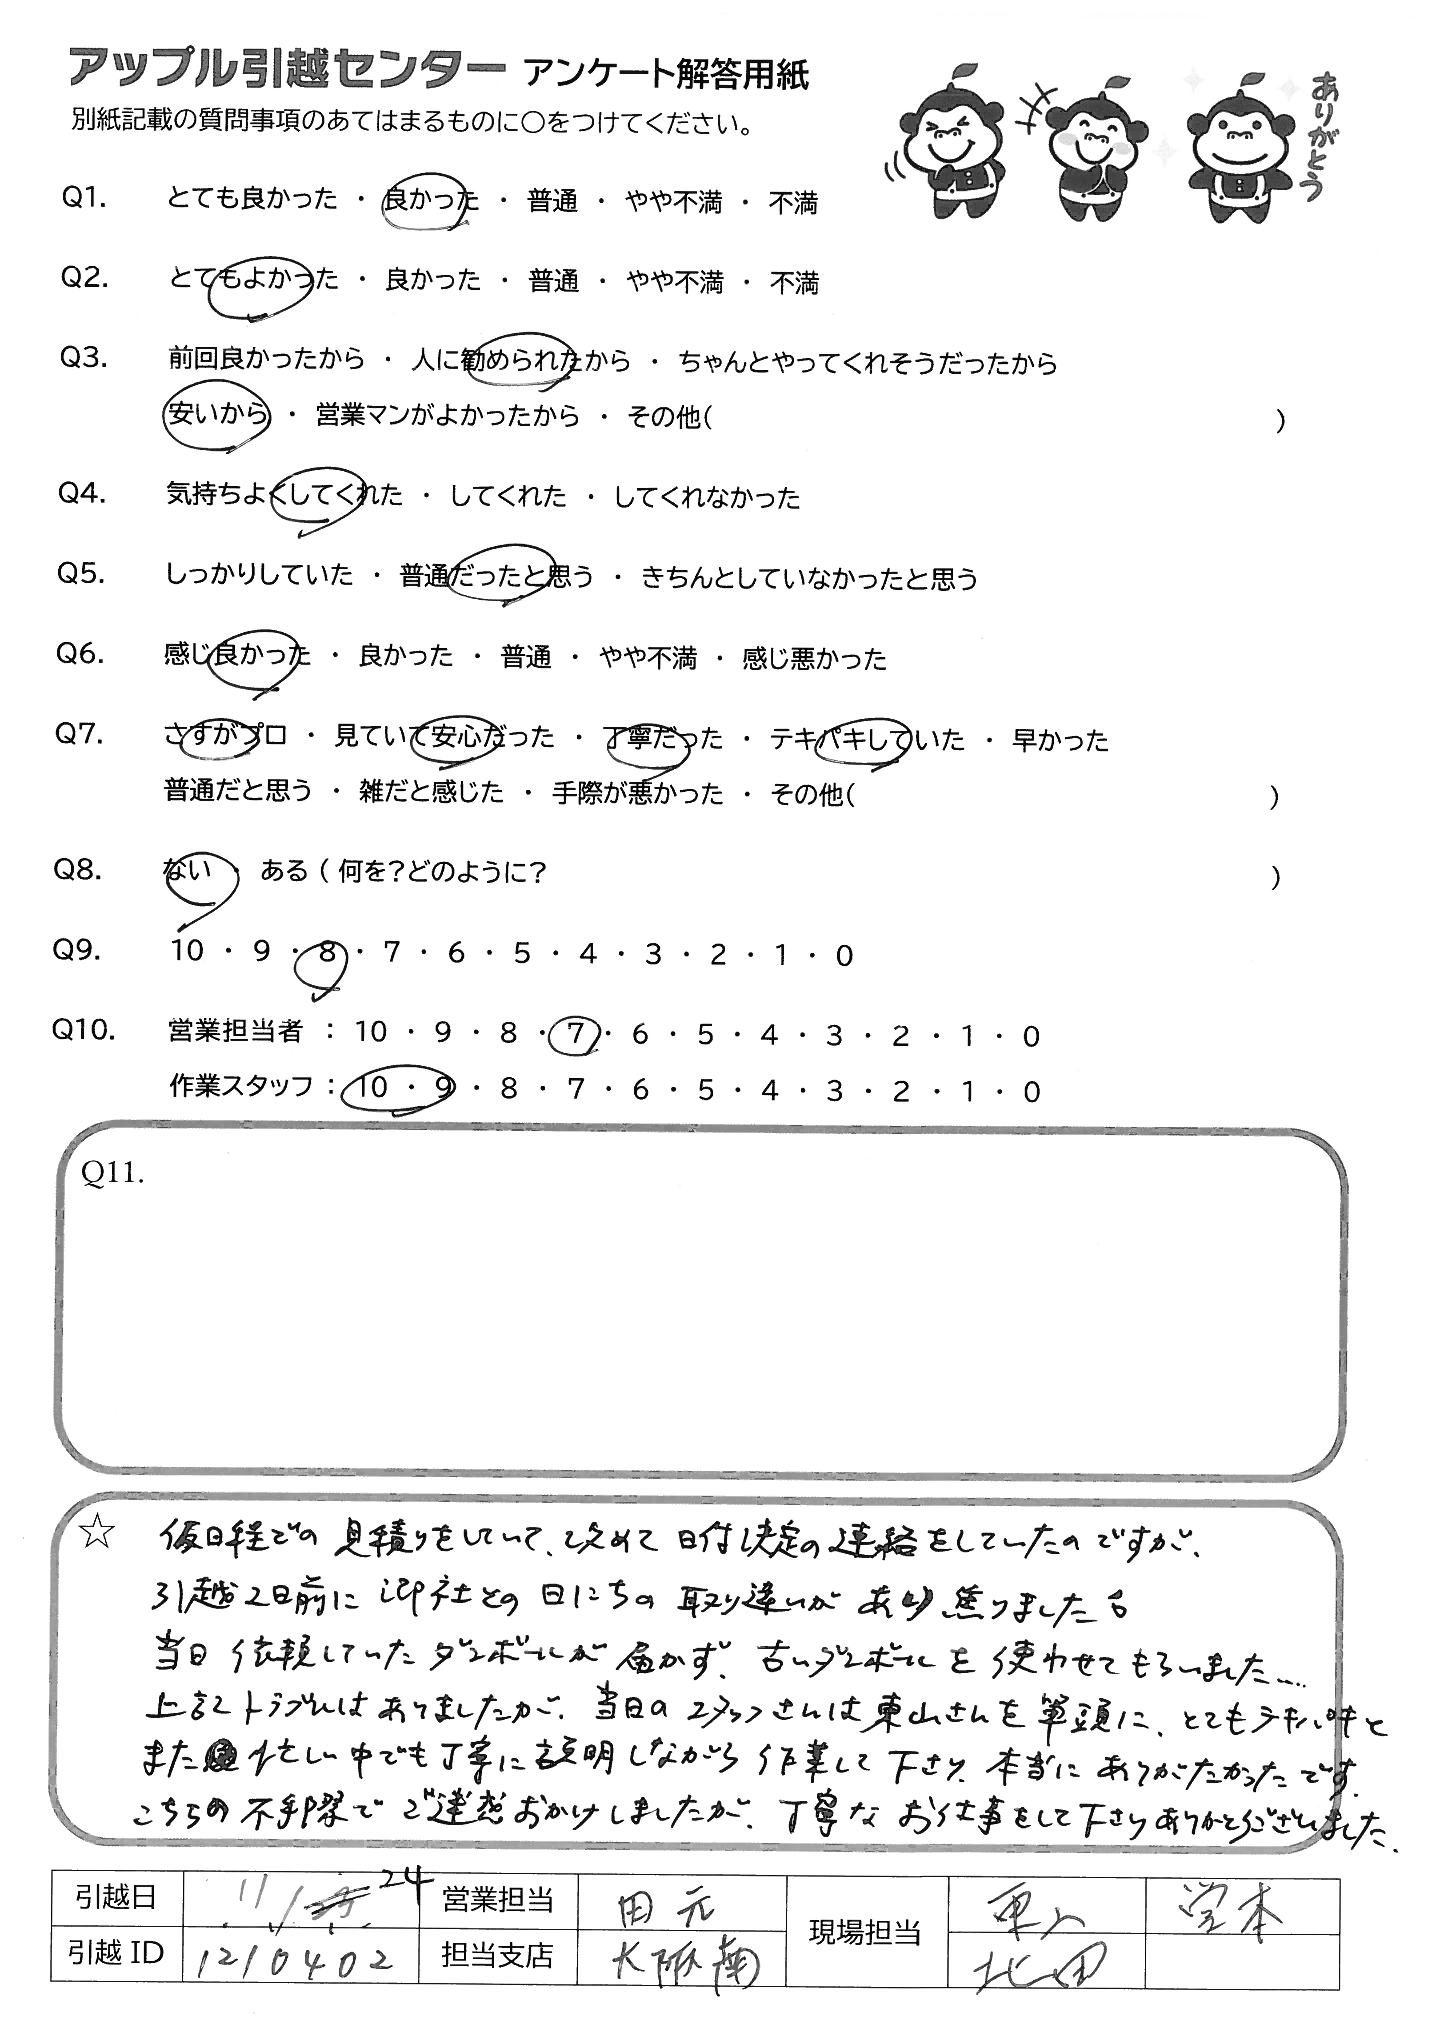 アップル引越センター アンケート解答用紙
ありがとう
別紙記載の質問事項のあてはまるものに〇をつけてください。
Q1. とても良かった ・ 良かった ・ 普通 ・ やや不満 ・ 不満
Q2. とてもよかった ・ 良かった ・ 普通 ・ やや不満 ・ 不満
Q3. 前回良かったから ・ 人に勧められたから ・ ちゃんとやってくれそうだったから
安いから ・ 営業マンがよかったから ・ その他( )
Q4. 気持ちよくしてくれた ・ してくれた ・ してくれなかった
Q5. しっかりしていた ・ 普通だったと思う ・ きちんとしていなかったと思う
Q6. 感じ良かった ・ 良かった ・ 普通 ・ やや不満 ・ 感じ悪かった
Q7. さすがプロ ・ 見ていて安心だった ・ 丁寧だった ・ テキパキしていた ・ 早かった
普通だと思う ・ 雑だと感じた ・ 手際が悪かった ・ その他( )
Q8. ない ・ ある ( 何を?どのように? )
Q9. 10 ・ 9 ・ 8 ・ 7 ・ 6 ・ 5 ・ 4 ・ 3 ・ 2 ・ 1 ・ 0
Q10. 営業担当者 : 10 ・ 9 ・ 8 ・ 7 ・ 6 ・ 5 ・ 4 ・ 3 ・ 2 ・ 1 ・ 0
作業スタッフ : 10 ・ 9 ・ 8 ・ 7 ・ 6 ・ 5 ・ 4 ・ 3 ・ 2 ・ 1 ・ 0
Q11.
☆ 仮日程での見積りをしていて、改めて日付決定の連絡をしていたのですが、
引越2日前に御社との日にちの取り違いがあり焦りました。
当日依頼していたダンボールが届かず、古いダンボールを使わせてもらいました…
上記トラブルはありましたが、当日のスタッフさんは東山さんを筆頭に、とてもテキパキと
また忙しい中でも丁寧に説明しながら作業して下さり、本当にありがたかったです。
こちらの不手際でご迷惑おかけしましたが、丁寧なお仕事をして下さりありがとうございました。
引越日 11/24 営業担当 田元 現場担当 東山 堂本
引越 ID 1210402 担当支店 大阪南 北田